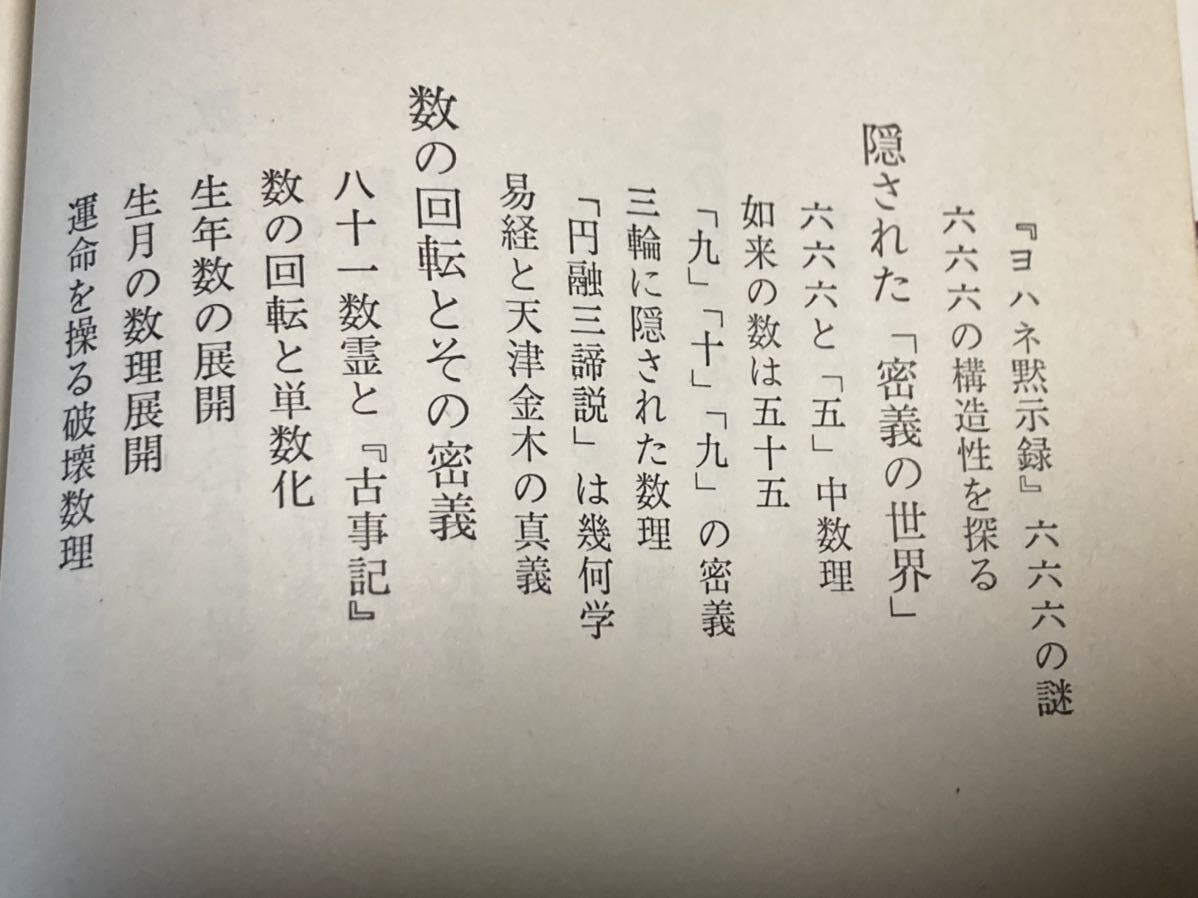 『ヨハネ黙示録』六六六の謎
六六六の構造性を探る
隠された「密義の世界」
六六六と「五」中数理
如来の数は五十五
「九」「十」「九」の密義
三輪に隠された数理
「円融三諦説」は幾何学
易経と天津金木の真義
数の回転とその密義
八十一数霊と『古事記』
数の回転と単数化
生年数の展開
生月の数理展開
運命を操る破壊数理